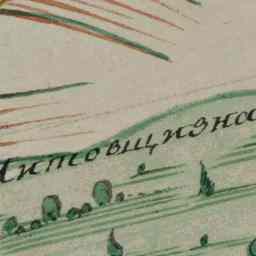 Литовщизна